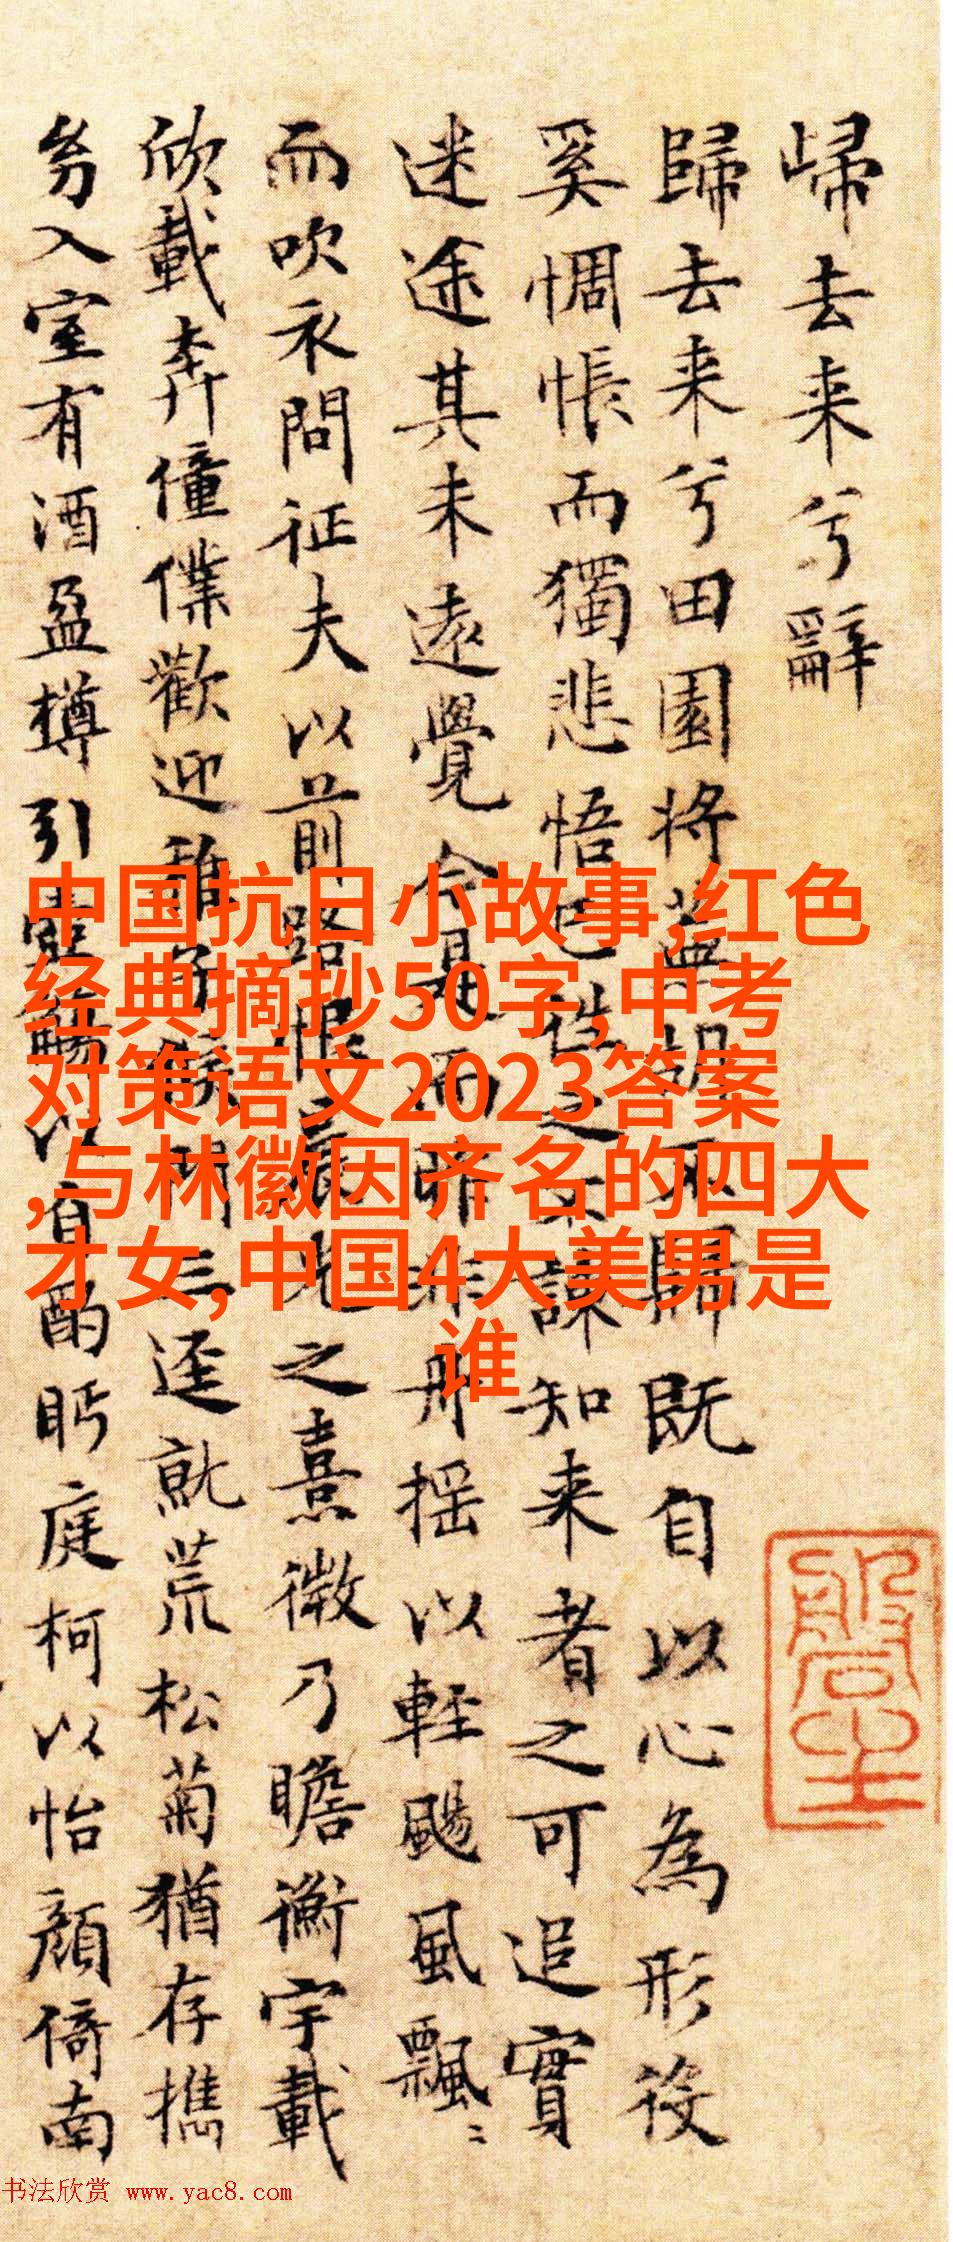 歸去来兮辭
歸去来兮田園将蕪胡不歸既自以心為形役
奚惆悵而獨悲悟已往之不諫知来者之可追實
迷途其未遠覺今是而昨非舟摇以輕颺風飄〻
而吹衣問征夫以前路恨晨光之熹微乃瞻衡宇載
欣載奔僮僕歡迎稚子候門三逕就荒松菊猶存携
㓜入室有酒盈樽引壺觴以自酌眄庭柯以怡顔倚南
中国抗日小故事,红色
经典摘抄50字,中考
对策语文2023答案
,与林徽因齐名的四大
才女,中国4大美男是
谁
书法欣赏 www.yac8.com